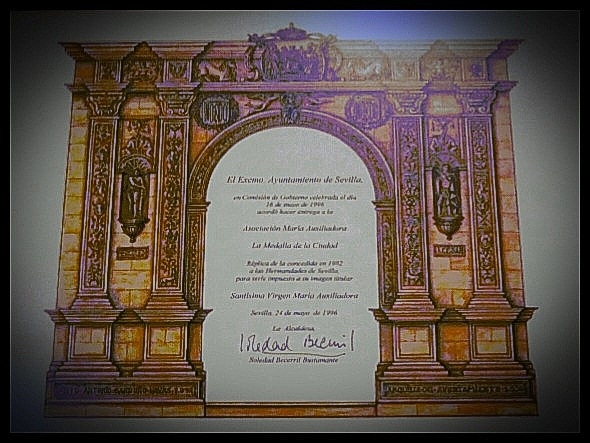 El Excmo. Ayuntamiento de Sevilla,
en Comisión de Gobierno celebrada el día
16 de mayo de 1996
acordó hacer entrega a la
Asociación María Auxiliadora
La Medalla de la Ciudad
Réplica de la concedida en 1982
a las Hermandades de Sevilla,
para serle impuesta a su imagen titular
Santísima Virgen María Auxiliadora
Sevilla, 24 de mayo de 1996
La Alcaldesa,
Soledad Becerril
Soledad Becerril Bustamante